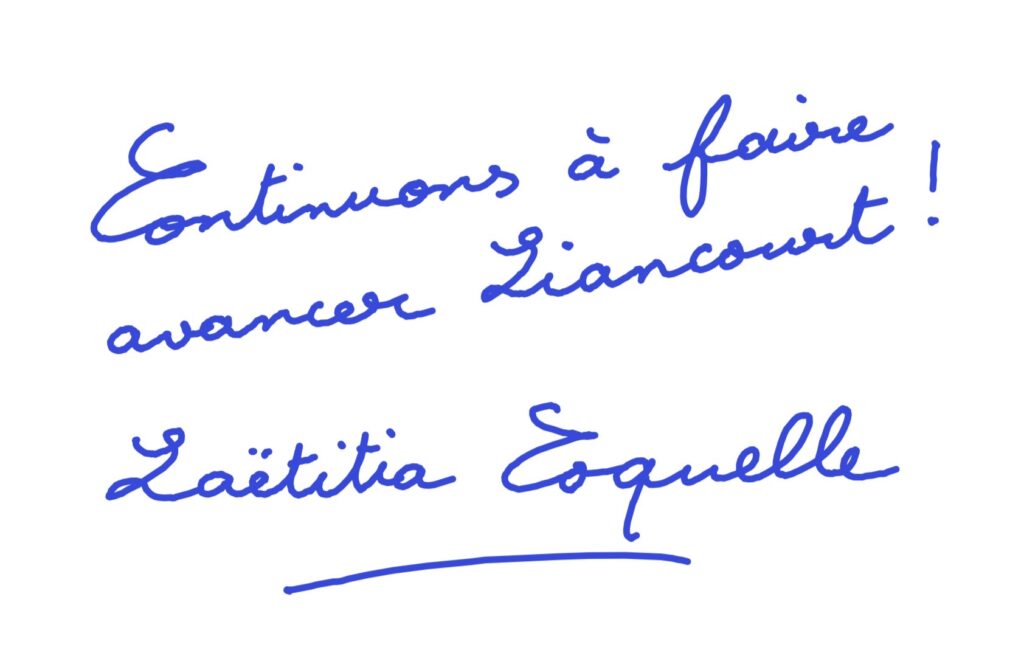 Continuons à faire
avancer Liancourt !
Laëtitia Coquelle